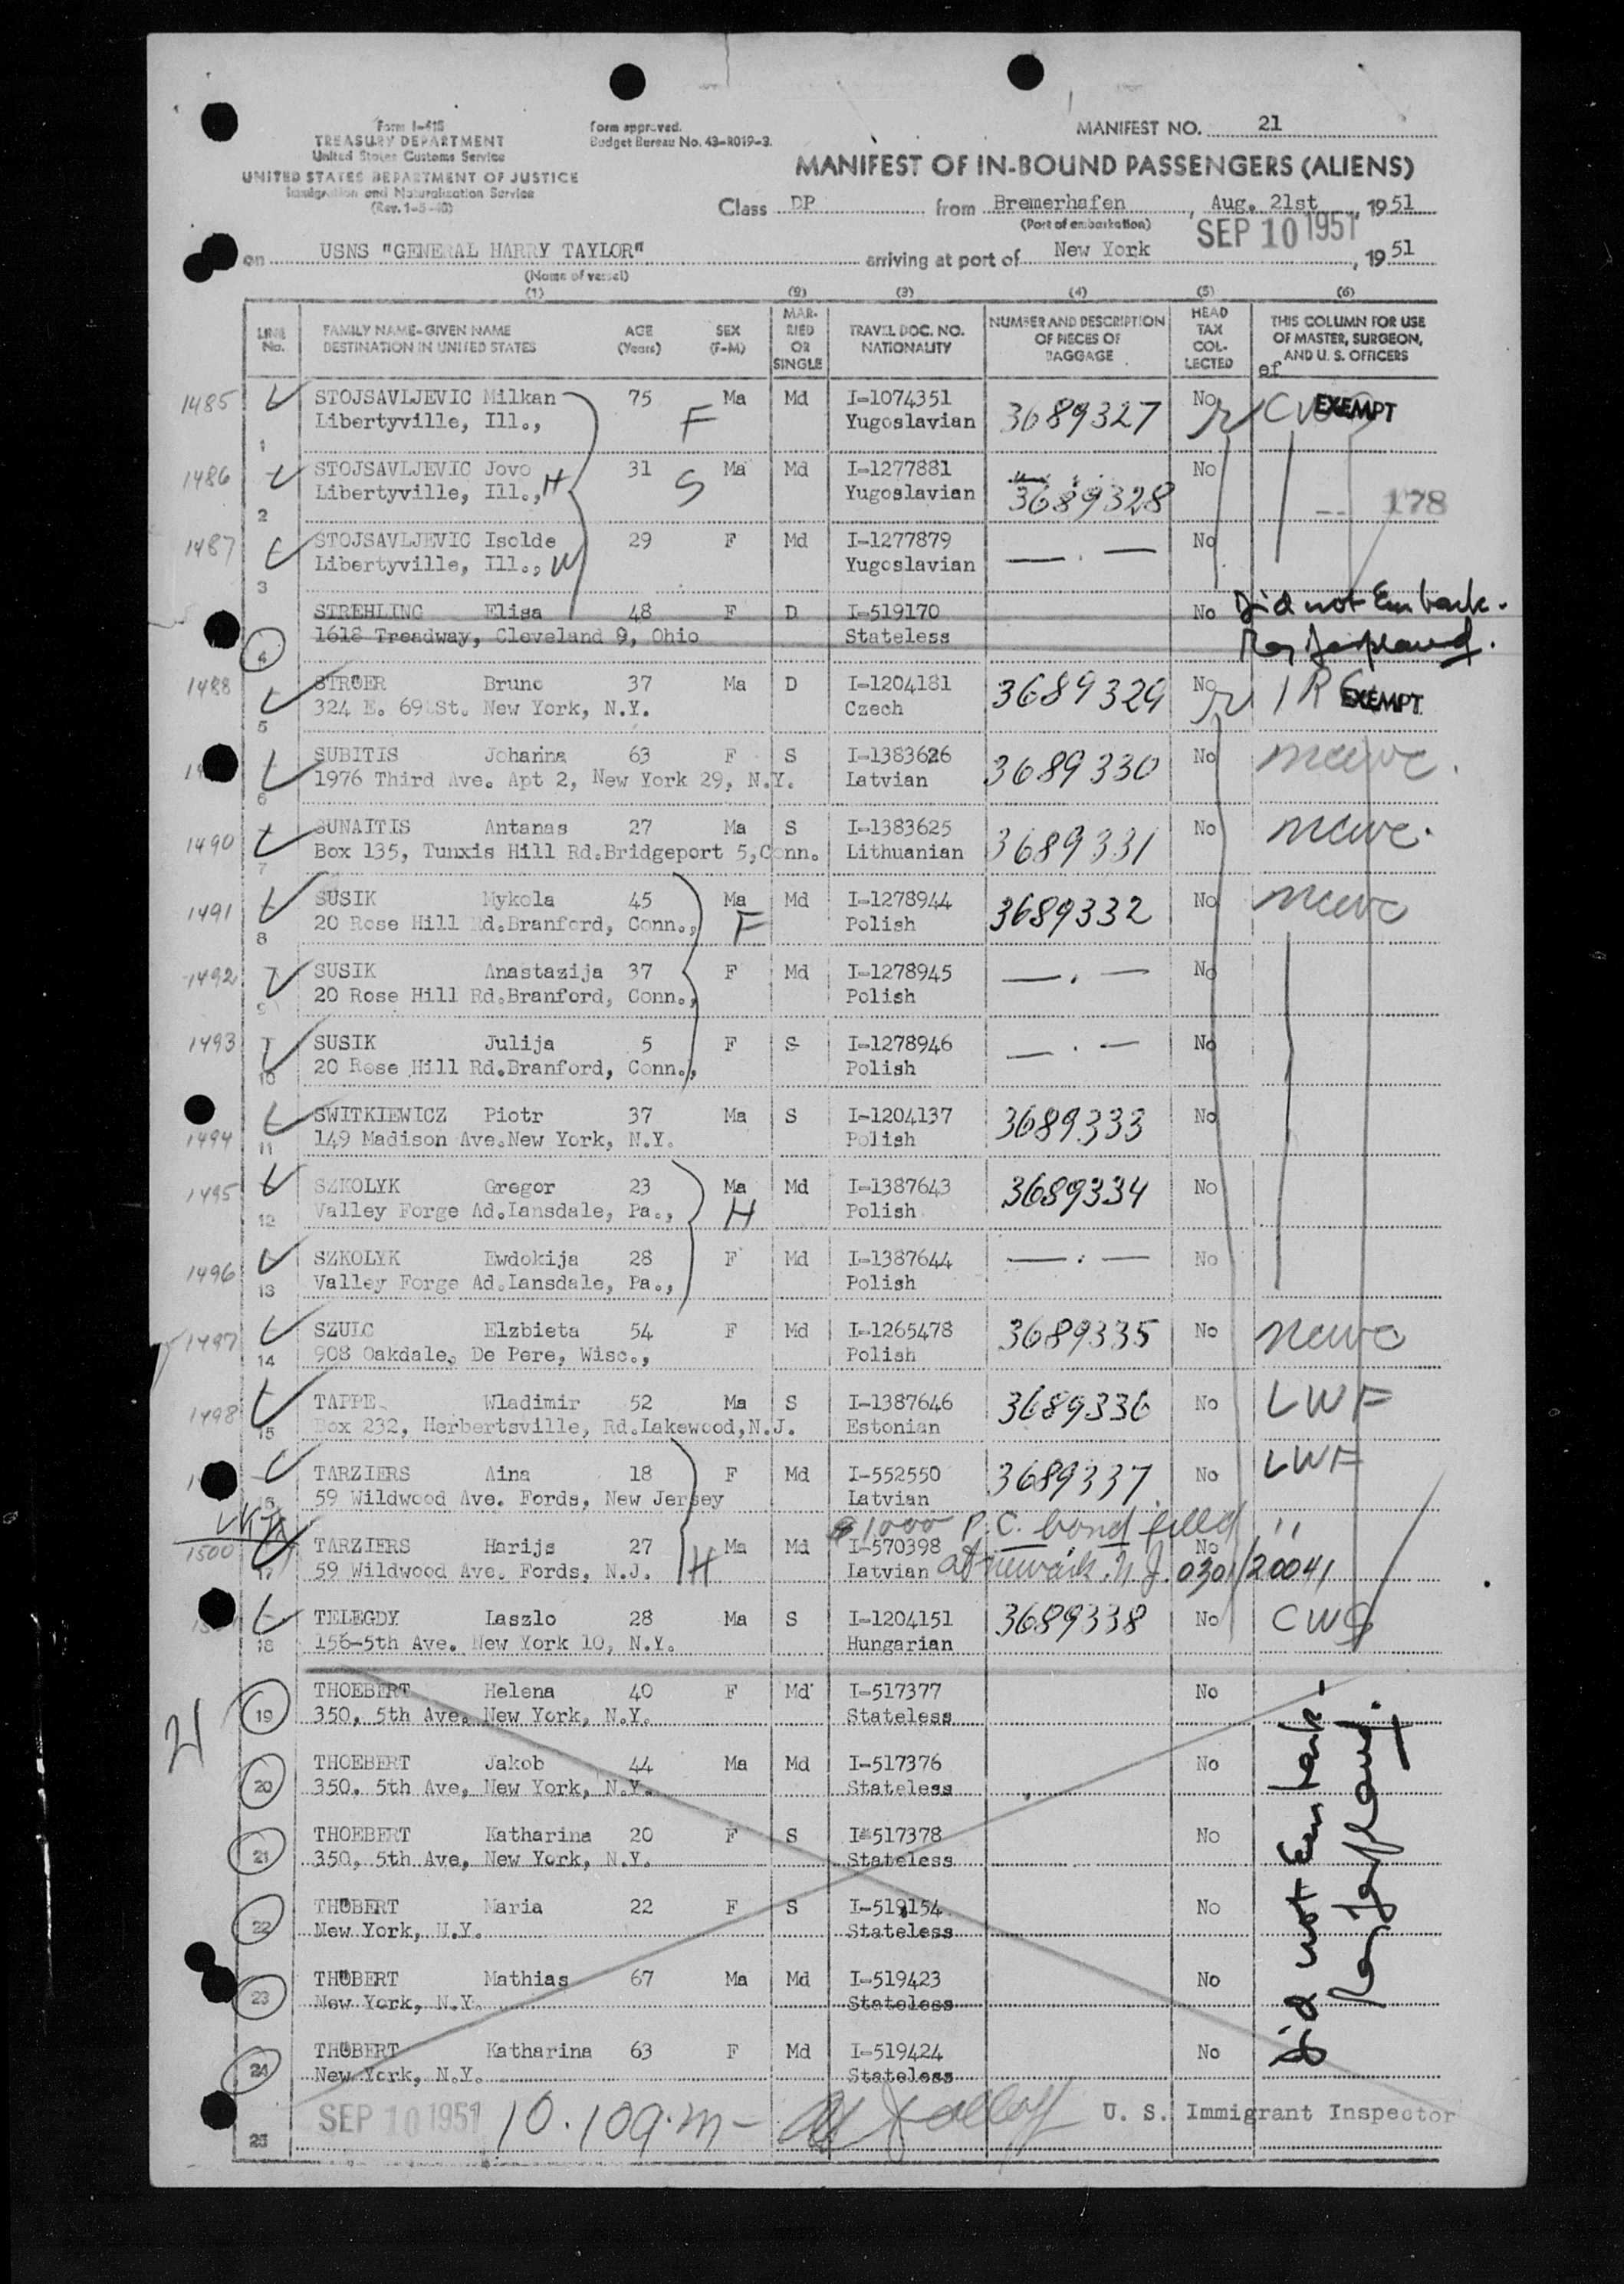 Form I-415
TREASURY DEPARTMENT
United States Customs Service
UNITED STATES DEPARTMENT OF JUSTICE
Immigration and Naturalization Service
(Rev. 1-5-48)
Form approved.
Budget Bureau No. 43-R019-3.
MANIFEST NO. 21
MANIFEST OF IN-BOUND PASSENGERS (ALIENS)
Class DP from Bremerhafen, Aug. 21st, 1951
(Port of embarkation)
SEP 10 1951
on USNS "GENERAL HARRY TAYLOR" arriving at port of New York, 1951
(Name of vessel)
(1) (2) (3) (4) (5) (6)
LINE No. FAMILY NAME-GIVEN NAME DESTINATION IN UNITED STATES AGE (Years) SEX (F-M) MARRIED OR SINGLE TRAVEL DOC. NO. NATIONALITY NUMBER AND DESCRIPTION OF PIECES OF BAGGAGE HEAD TAX COLLECTED THIS COLUMN FOR USE OF MASTER, SURGEON, AND U. S. OFFICERS
1485 STOJSAVLJEVIC Milkan 75 Ma Md I-1074351 3689327 No EXEMPT
1 Libertyville, Ill., F Yugoslavian
1486 STOJSAVLJEVIC Jovo 31 Ma Md I-1277881 3689328 No
2 Libertyville, Ill., H S Yugoslavian 178
1487 STOJSAVLJEVIC Isolde 29 F Md I-1277879 No
3 Libertyville, Ill., W Yugoslavian
STREHLING Elisa 48 F D I-519170 No Did not Embark.
4 1618 Treadway, Cleveland 9, Ohio Stateless
1488 STROER Bruno 37 Ma D I-1204181 3689329 No EXEMPT
5 324 E. 69 St. New York, N.Y. Czech
SUBITIS Johanna 63 F S I-1383626 3689330 No
6 1976 Third Ave. Apt 2, New York 29, N.Y. Latvian
1490 SUNAITIS Antanas 27 Ma S I-1383625 3689331 No
7 Box 135, Tunxis Hill Rd.Bridgeport 5,Conn. Lithuanian
1491 SUSIK Mykola 45 Ma Md I-1278944 3689332 No
8 20 Rose Hill Rd.Branford, Conn., F Polish
1492 SUSIK Anastazija 37 F Md I-1278945 No
9 20 Rose Hill Rd.Branford, Conn., Polish
1493 SUSIK Julija 5 F S I-1278946 No
10 20 Rose Hill Rd.Branford, Conn., Polish
SWITKIEWICZ Piotr 37 Ma S I-1204137 3689333 No
1494 11 149 Madison Ave.New York, N.Y. Polish
1495 SZKOLYK Gregor 23 Ma Md I-1387643 3689334 No
12 Valley Forge Ad.Lansdale, Pa., H Polish
1496 SZKOLYK Ewdokija 28 F Md I-1387644 No
13 Valley Forge Ad.Lansdale, Pa., Polish
1497 SZULC Elzbieta 54 F Md I-1265478 3689335 No
14 908 Oakdale, De Pere, Wisc., Polish
1498 TAPPE Wladimir 52 Ma S I-1387646 3689336 No LWF
15 Box 232, Herbertsville, Rd.Lakewood,N.J. Estonian
TARZIERS Aina 18 F Md I-552550 3689337 No LWF
59 Wildwood Ave. Fords, New Jersey Latvian
$1000 P.C. bond filed "
1500 TARZIERS Harijs 27 Ma Md I-570398 No
17 59 Wildwood Ave. Fords, N.J. H Latvian at Newark, N.J. 0301/20041
TELEGDY Laszlo 28 Ma S I-1204151 3689338 No CWS
18 156-5th Ave. New York 10, N.Y. Hungarian
THOEBERT Helena 40 F Md I-517377 No
19 350, 5th Ave. New York, N.Y. Stateless
21
THOEBERT Jakob 44 Ma Md I-517376 No
20 350. 5th Ave, New York, N.Y. Stateless
THOEBERT Katharina 20 F S I-517378 No
21 350, 5th Ave, New York, N.Y. Stateless
THÖBERT Maria 22 F S I-519154 No
22 New York, N.Y. Stateless
THÖBERT Mathias 67 Ma Md I-519423 No
23 New York, N.Y. Stateless
THÖBERT Katharina 63 F Md I-519424 No
24 New York, N.Y. Stateless
Did not Embark-
SEP 10 1951 10.10 a.m- U. S. Immigrant Inspector
25